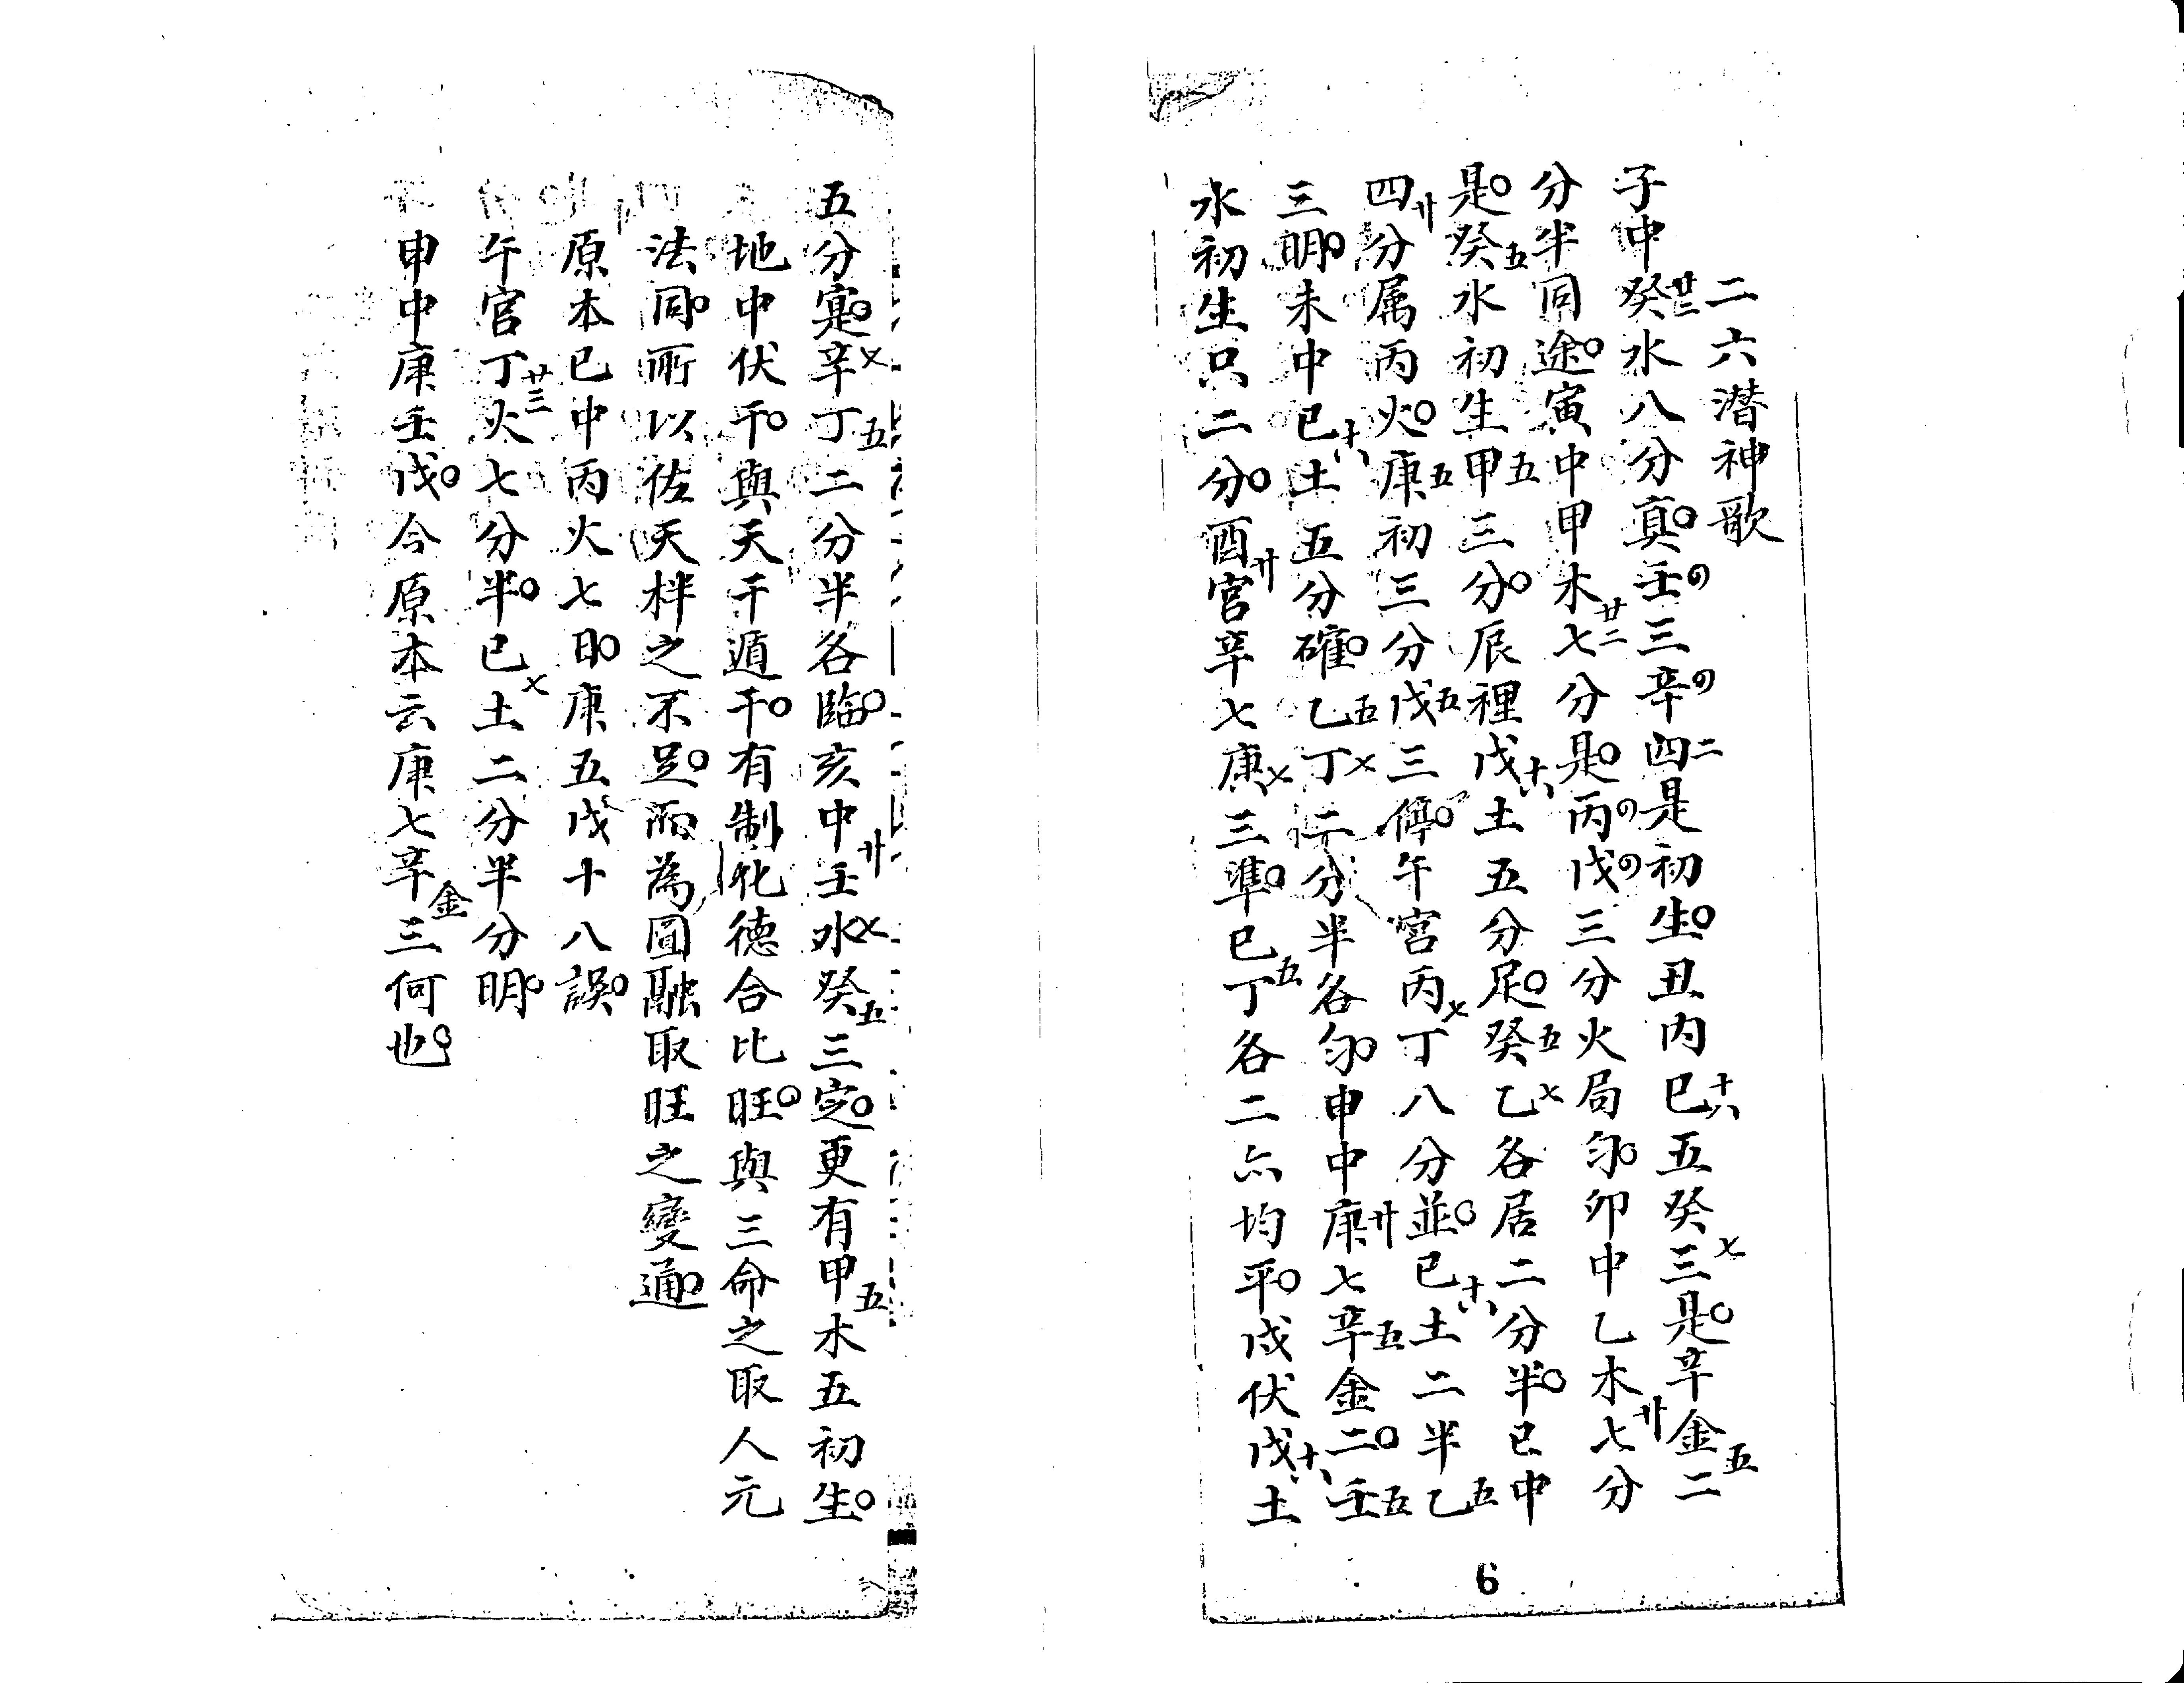 二六潜神歌
子中癸水八分真壬三辛四是初生丑内已五癸三是辛金二
分半同途寅中甲木七分是丙戊三分火局匀卯中乙木七分
是癸水初生甲三分辰裡戊土五分足癸乙各居二分半已中
四分属丙火庚初三分戊三停午宮丙丁八分並已土二半乙
三明未中已土五分確乙丁二分半各匀申中庚七辛金二壬
水初生只二分酉宮辛七庚三準已丁各二六均平戌伏戊土
6
五分寔辛丁二分半各臨亥中壬水癸三定更有甲木五初生
地中伏干與天干遁干有制化德合比旺與三命之取人元
法同所以佐天柈之不足而為圓融取旺之變通
原本已中丙火七明庚五戊十八誤
午官丁火七分半已土二分半分明
申中庚壬戊今原本云庚七辛三何也